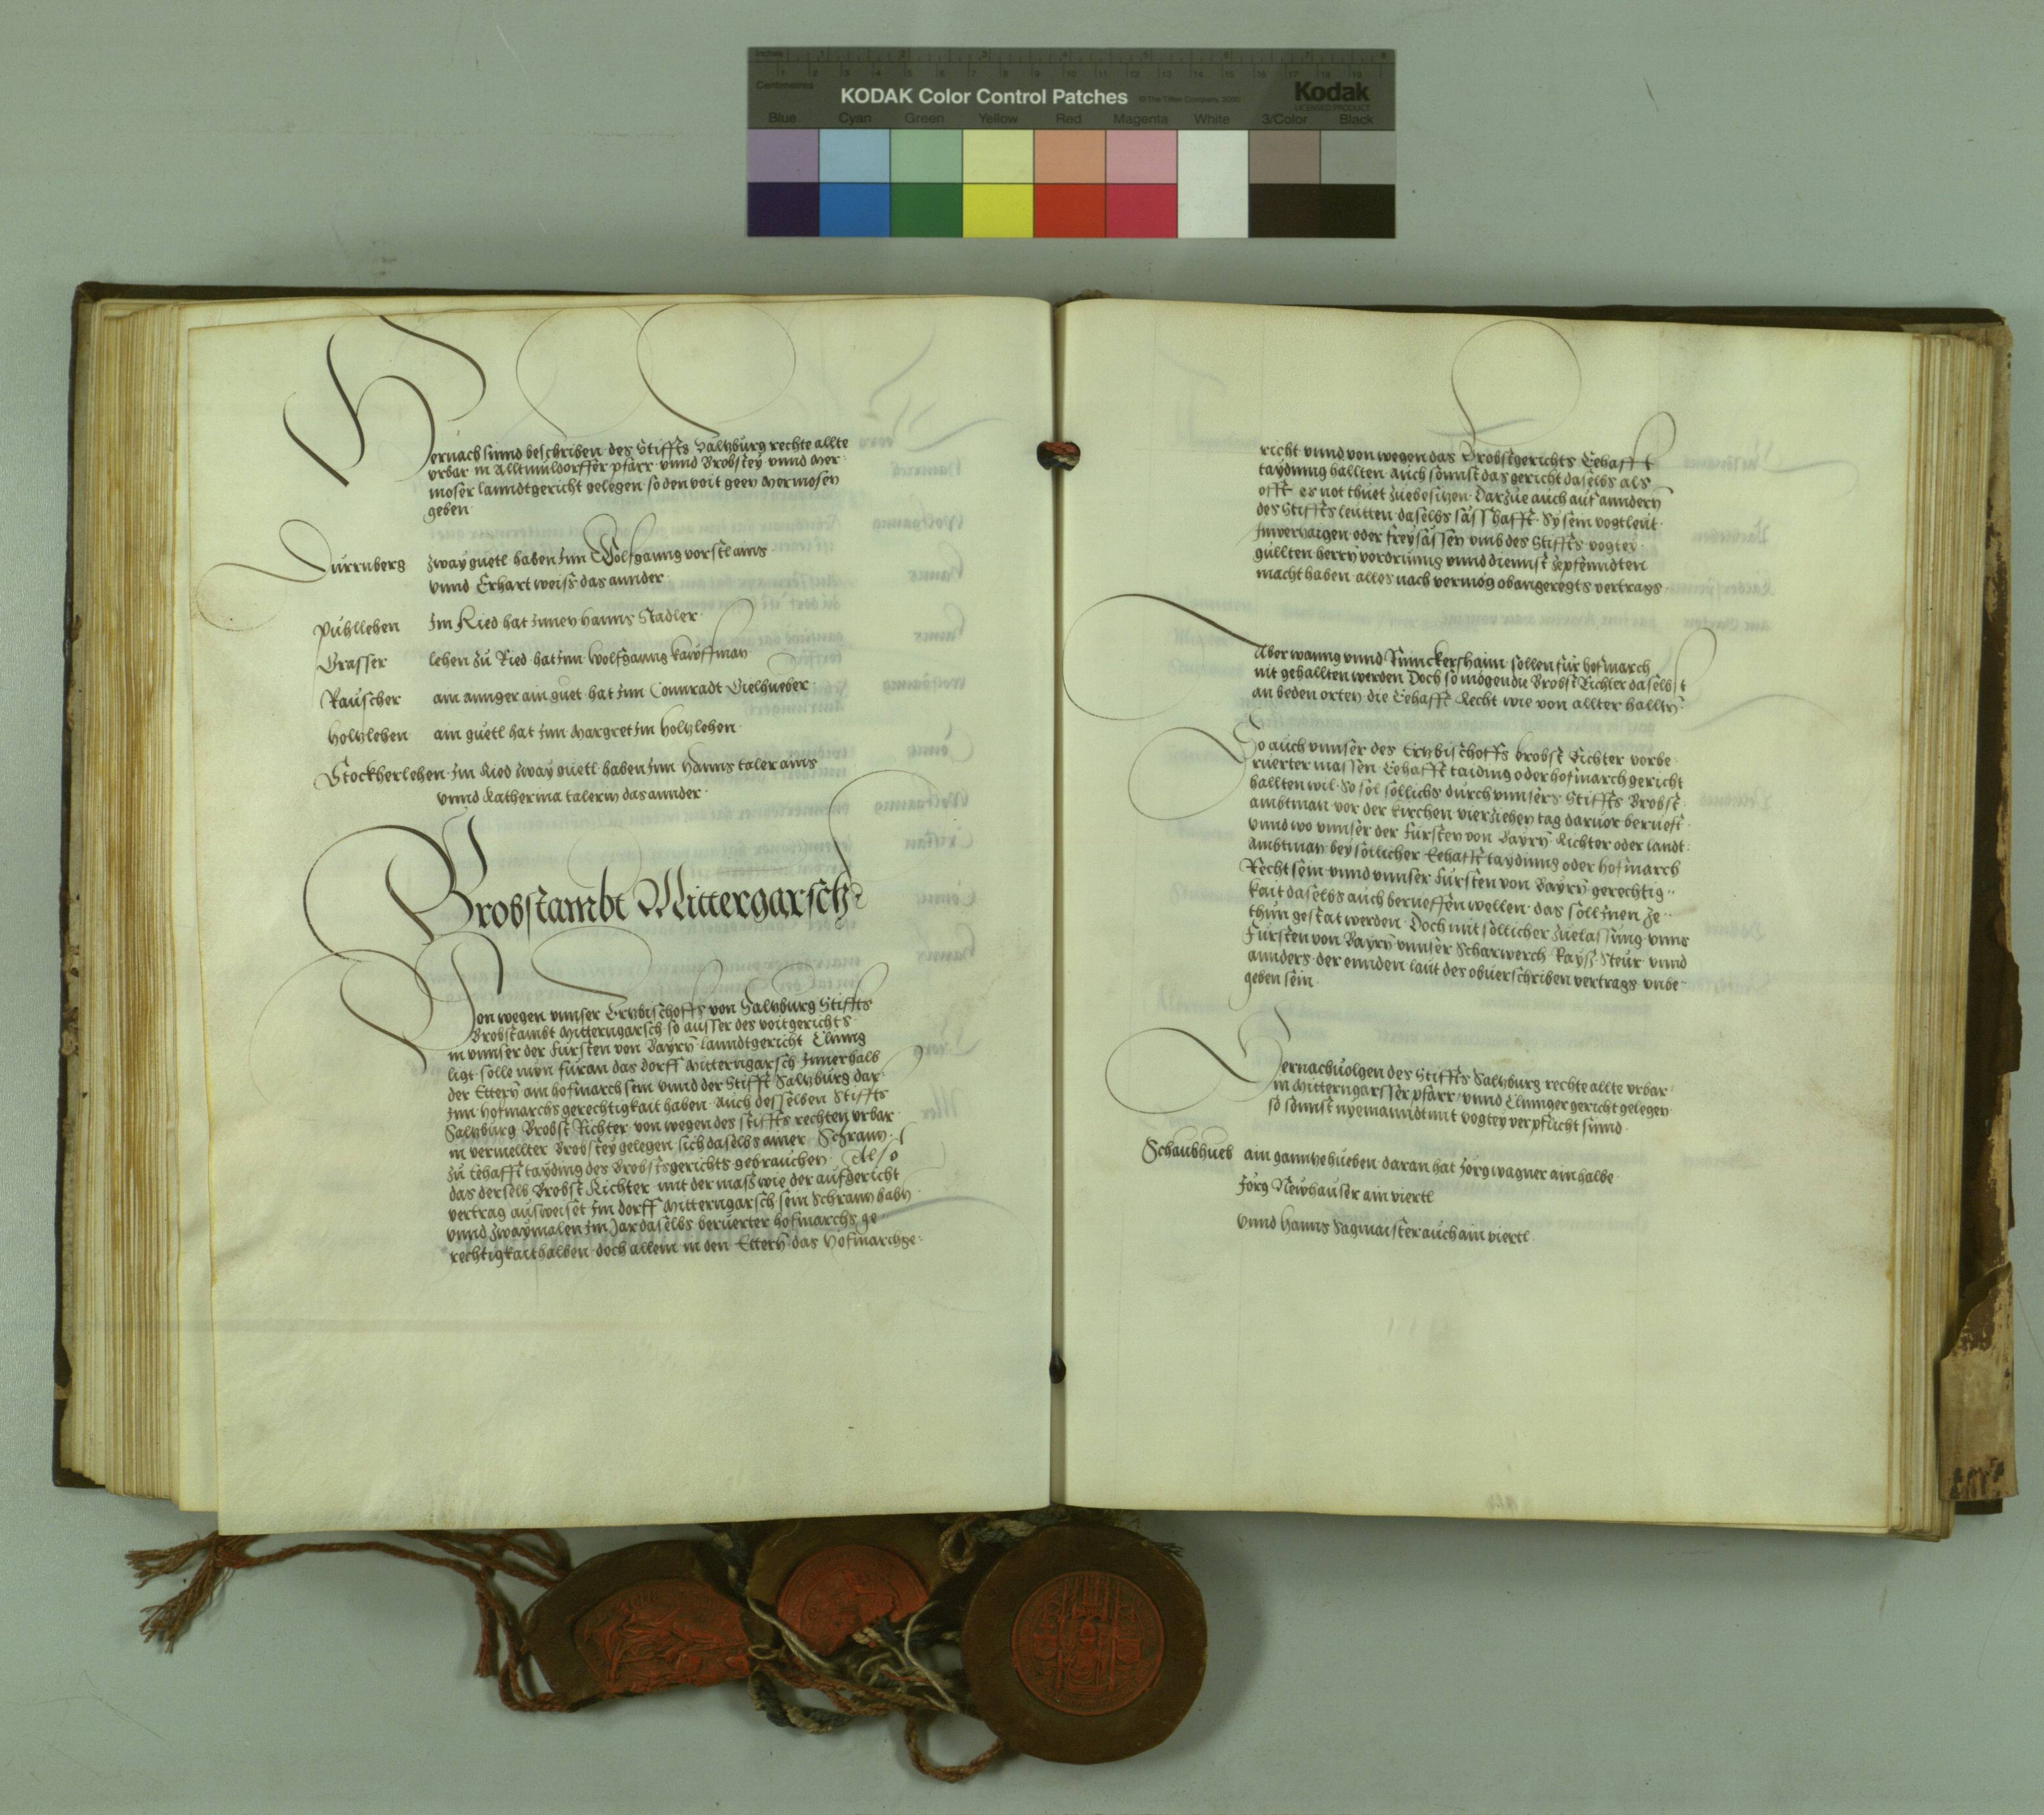 Inches 1 2 3 4 5 6 7 8
Centimetres 1 2 3 4 5 6 7 8 9 10 11 12 13 14 15 16 17 18 19
KODAK Color Control Patches © The Tiffen Company, 2000 Kodak
LICENSED PRODUCT
Blue Cyan Green Yellow Red Magenta White 3/Color Black
Hernach sinnd beschriben des Stiffts Saltzburg rechte allte
vrbar in Alltmuldorffer pfarr vnnd Brobstey vnnd Mer
moser lanndtgericht gelegen so den voit geen Mermosen
geben
Durrnberg zway guetl haben Inn Wolfganng vorstl ains
vnnd Erhart weiss das annder
Puhllehen Im Ried hat Innen Hanns Stadler
Grasser lehen zu Ried hat Inn Wolfganng kauffman
Rauscher am annger ain guet hat Inn Connradt Gielhueber
Holtzlehen ain guetl hat Inn Margret Im Holtzlehen
Stockherlehen Im Ried zway guetl haben Inn Hanns taler ains
vnnd Katherina talerin das annder
Brobstambt Mittergarsch
Von wegen vnnser Ertzbischoffs von Saltzburg Stiffts
Brobstambt Mitterngarsch so ausser des voitgerichts
in vnnser der Fursten von Bayrn lanndtgericht Clinng
ligt solle nun furan das dorff Mitterngarsch Innerhalb
der Ettern ain hofmarch sein vnnd der Stifft Saltzburg dar
Inn Hofmarchs gerechtigkait haben Auch desselben Stiffts
Saltzburg Brobst Richter von wegen des stiffts rechten vrbar
in vermellter Brobstey gelegen sich daselbs ainer Schrann
zu Eehafft tayding des Brobstsgerichts gebrauchen Also
das derselb Brobst Richter mit der mass wie der aufgericht
vertrag ausweiset Im dorff Mitterngarsch sein Schrann habn
vnnd zwaymalen Im Jar daselbs beruerter hofmarchs ge
rechtigkait halben doch allein in den Ettern das Hofmarchge
richt vnnd von wegen das Brobstgerichts Eehafft
taydinng hallten Auch sonnst das gericht daselbs als
offt es not thuet zuebesitzen Darzue auch auf anndern
des Stiffts leutten daselbs sässhafft Sy sein vogtleut
Inwertzaigen oder freysässen vmb des Stiffts vogtey
güllten herrn vordrunng vnnd diennst ze pfenndten
macht haben alles nach vermög obangeregts vertrags
Aber wanng vnnd Rinnckershaim sollen für hofmarch
nit gehallten werden Doch so mögen die Brobst Richter daselbst
an beden orten die Eehafft Recht wie von allter halltn
So auch vnnser des Ertzbischoffs brobst Richter vorbe
ruerter massen Eehafft taiding oder hofmarch gericht
hallten wil So sol sollichs durch vnnsers Stiffts Brobst
ambtman vor der kirchen vierzehen tag daruor berueft
vnnd wo vnnser der Fursten von Bayrn Richter oder landt
ambtman bey sollicher Eehafft taydinng oder hofmarch
Recht sein vnnd vnnser Fursten von Bayrn gerechtig
kait daselbs auch berueffen wellen das soll Inen ze
thun gestat werden Doch mit sollicher zuelassung vnns
Fursten von Bayrn vnnser Scharwerch Rayss Steur vnnd
annders der ennden laut des obuerschriben vertrags vnbe
geben sein
Hernach volgen des Stiffts Saltzburg rechte allte vrbar
in Mitterngarsser pfarr vnnd Clinger gericht gelegen
so sonnst nyemanndt mit vogtey verpflicht sinnd
Schaubhueb ain ganntze hueben daran hat Jorg wagner ain halbe
Jorg Newhauser ain viertl
vnnd Hanns Sagmaister auch ain viertl